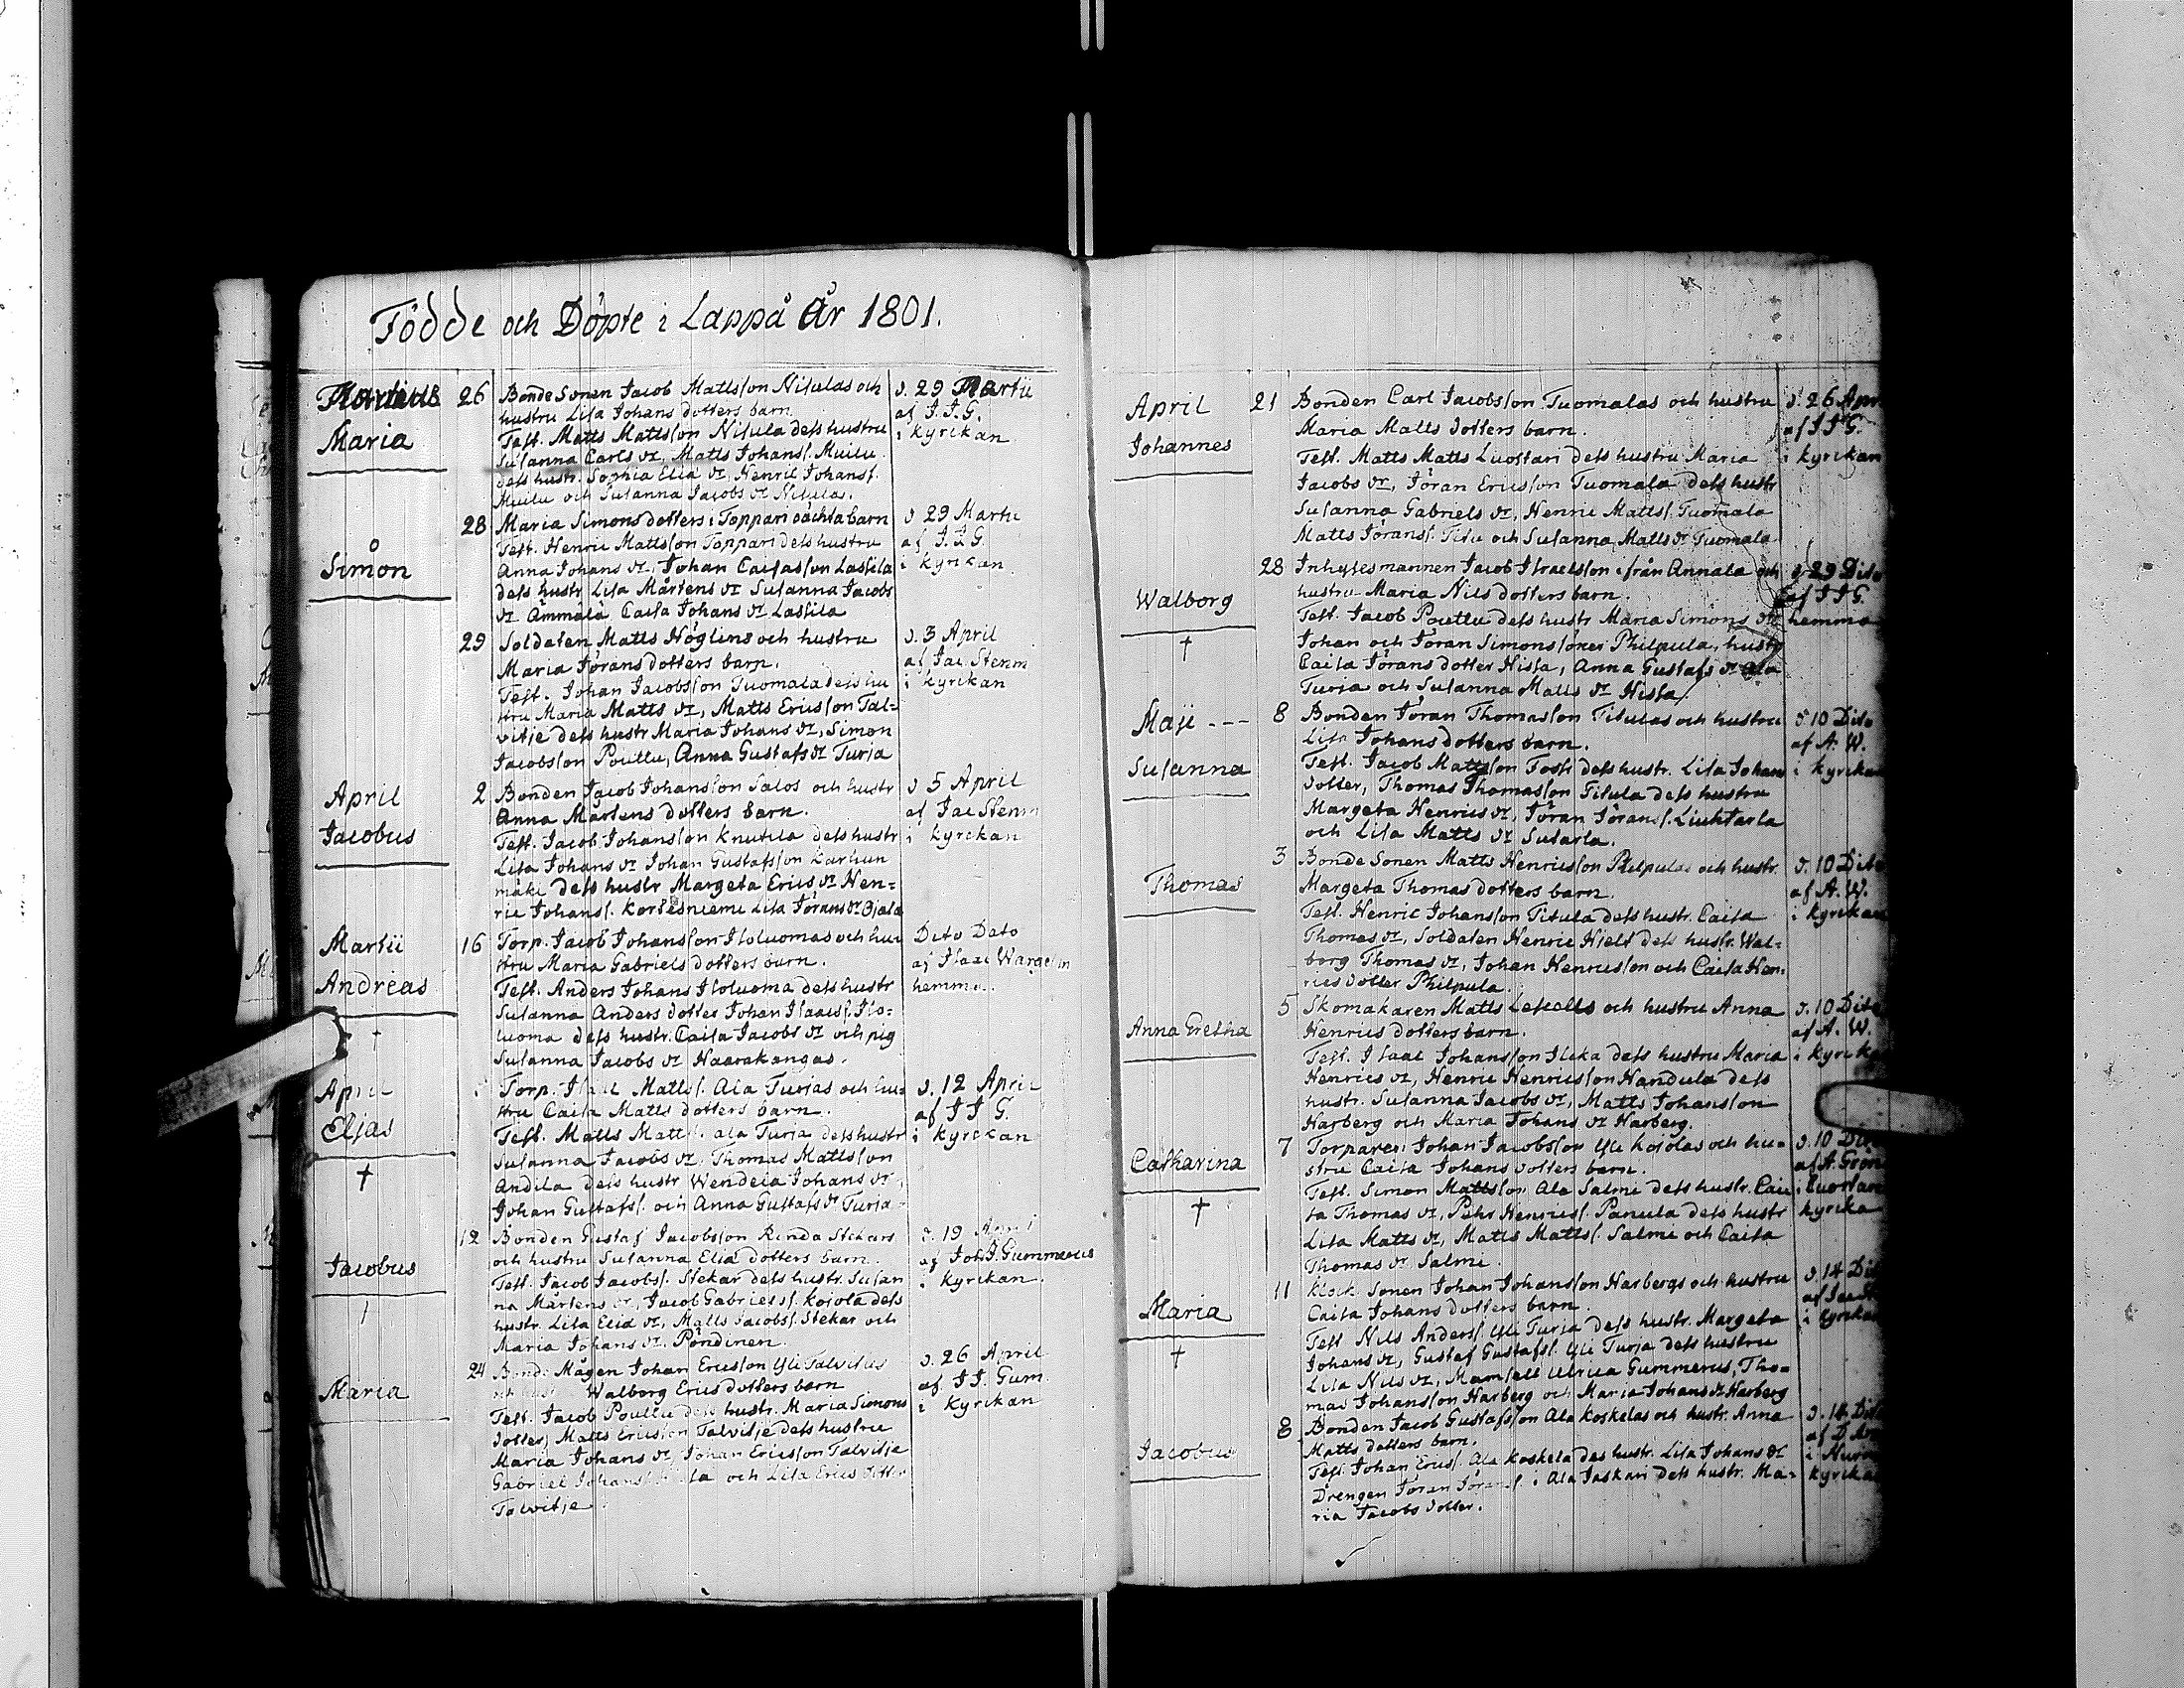 Födde och Döpte i Lappå År 1801.
Martius 26 Bonde Sonen Jacob Mattsson Nisulas och d. 29 Martii
hustru Lisa Johans dotters barn. af J. J. G.
Maria Test. Matts Mattsson Nisula dess hustru i kyrkan
Susanna Carls dr, Matts Johanss. Muilu
dess hustr. Sophia Elia dr, Henric Johanss.
Muilu och Susanna Jacobs dr Nisulas.
28 Maria Simons dotters i Toppari oächta barn d 29 Martii
Test. Henric Mattsson Toppari dess hustru af J. J. G.
Simon Anna Johans dr, Johan Caisasson Lassila i kyrkan
dess hustr Lisa Mårtens dr Susanna Jacobs
dr Ämmälä Caisa Johans dr Lassila
29 Soldaten Matts Höglins och hustru d. 3 April
Maria Jörans dotters barn. af Jac. Stenm
Test. Johan Jacobsson Tuomala dess hu i kyrkan
stru Maria Matts dr, Matts Ericsson Tal=
vitje dess hustr Maria Johans dr, Simon
Jacobsson Pouttu, Anna Gustafs dr Turja
April 2 Bonden Jacob Johansson Salos och hustr d 5 April
Anna Mårtens dotters barn. af Jac Stenm
Jacobus Test. Jacob Johansson Knutila dess hustr i kyrkan
Lisa Johans dr Johan Gustafsson Karhun
mäki dess hustr Margeta Erics dr Hen=
ric Johanss. Korkesniemi Lisa Jörans dr Ojala
Martii 16 Torp. Jacob Johansson Isoluomas och hu= Dito Dato
stru Maria Gabriels dotters barn. af Isaac Wargelin
Andreas Test. Anders Johans Isoluoma dess hustr hemma.
Susanna Anders dotter Johan Isaacss. Iso=
luoma dess hustr. Caisa Jacobs dr och pig
† Susanna Jacobs dr Haarakangas.
April Torp. Matts. Ala Turjas och hu= d. 12 April
stru Caisa Matts dotters barn. af J J G.
Eljas Test. Matts Matts. ala Turja dess hustr i kyrkan
Susanna Jacobs dr, Thomas Mattsson
† Andila dess hustr Wendela Johans dr
Johan Gustafss. och Anna Gustafs dr Turja
12 Bonden Gustaf Jacobsson Rinda Stekars d. 19 April
och hustru Susanna Elia dotters barn. af Joh. J. Gummerus
Jacobus Test. Jacob Jacobss. Stekar dess hustr. Susan i kyrkan.
na Mårtens dr, Jacob Gabrielss. Kojola dess
hustr. Lisa Elia dr, Matts Jacobss. Stekar och
Maria Johans dr. Pöndinen.
24 Bonde Mågen Johan Ericsson Yli Talvities d. 26 April
Walborg Erics dotters barn af J J. Gum.
Maria Test. Jacob Pouttu dess hustr. Maria Simons i Kyrkan
dotter, Matts Ericsson Talvitje dess hustru
Maria Johans dr, Johan Ericsson Talvitje
Gabriel och Lisa Erics dotter
Talvitje.
April 21 Bonden Carl Jacobsson Tuomalas och hustru d. 26 Apr
Maria Matts dotters barn. af J J G.
Johannes Test. Matts Matts Luostari dess hustru Maria i kyrkan
Jacobs dr, Jöran Ericsson Tuomala dess hustr
Susanna Gabriels dr, Henric Mattss. Tuomala
Matts Jöranss. Titu och Susanna Matts dr Tuomala
28 Inhysesmannen Jacob Israelsson ifrån Annala och d. 29 Dito
Walborg hustru Maria Nils dotters barn. af J J G.
Test. Jacob Pouttu dess hustr Maria Simons dr hemma
† Johan och Jöran Simonssöner Philpula, hustr
Caisa Jörans dotter Hissa, Anna Gustafs dr ala
Turja och Susanna Matts dr Hissa.
Maji --- 8 Bonden Jöran Thomasson Titulas och hustru d 10 Dito
Lisa Johans dotters barn. af A. W.
Susanna Test. Jacob Mattsson Fossi dess hustr. Lisa Johans i kyrkan
dotter, Thomas Thomasson Titula dess hustru
Margeta Henrics dr, Jöran Jöranss. Luhtarla
och Lisa Matts dr Sutarla.
3 Bonde Sonen Matts Henricsson Philpulas och hustr. d. 10 Dito
Thomas Margeta Thomas dotters barn. af A. W.
Test. Henric Johansson Titula dess hustr. Caisa i kyrkan
Thomas dr, Soldaten Henric Hielt dess hustr. Wal=
borg Thomas dr, Johan Henricsson och Caisa Hen=
rics dotter Philpula.
5 Skomakaren Matts och hustru Anna d. 10 Dito
Anna Gretha Henrics dotters barn. af A. W.
Test. Isaac Johansson Ilkka dess hustru Maria i kyrka
Henrics dr, Henric Henricsson Handula dess
hustr. Susanna Jacobs dr, Matts Johansson
Harberg och Maria Johans dr Harberg.
7 Torparen Johan Jacobsson Yli Kojolas och hu= d. 10 Dito
Catharina stru Caisa Johans dotters barn. af A. Grön
Test. Simon Mattsson Ala Salmi dess hustr. Cai i Cuortan
† sa Thomas dr, Pehr Henricss. Panula dess hustr kyrka
Lisa Matts dr, Matts Mattss. Salmi och Caisa
Thomas dr Salmi.
11 Klock. Sonen Johan Johansson Harbergs och hustru d. 14 Dit
Maria Caisa Johans dotters barn. af Jac St
Test Nils Anderss. Yli Turja dess hustr. Margeta i kyrkan
† Johans dr, Gustaf Gustafss. Yli Turja dess hustru
Lisa Nils dr, Mamsell Ulrica Gummerus, Tho=
mas Johansson Harberg och Maria Johans dr Harberg
8 Bonden Jacob Gustafsson Ala Koskelas och hustr. Anna d. 14 Dit
Jacobus Matts dotters barn. af D
Test. Johan Ericss. Ala Koskela des hustr. Lisa Johans dr i Nurmo
Drengen Jöran i Ala Jaskari dess hustr. Ma= kyrka
ria Jacobs dotter.